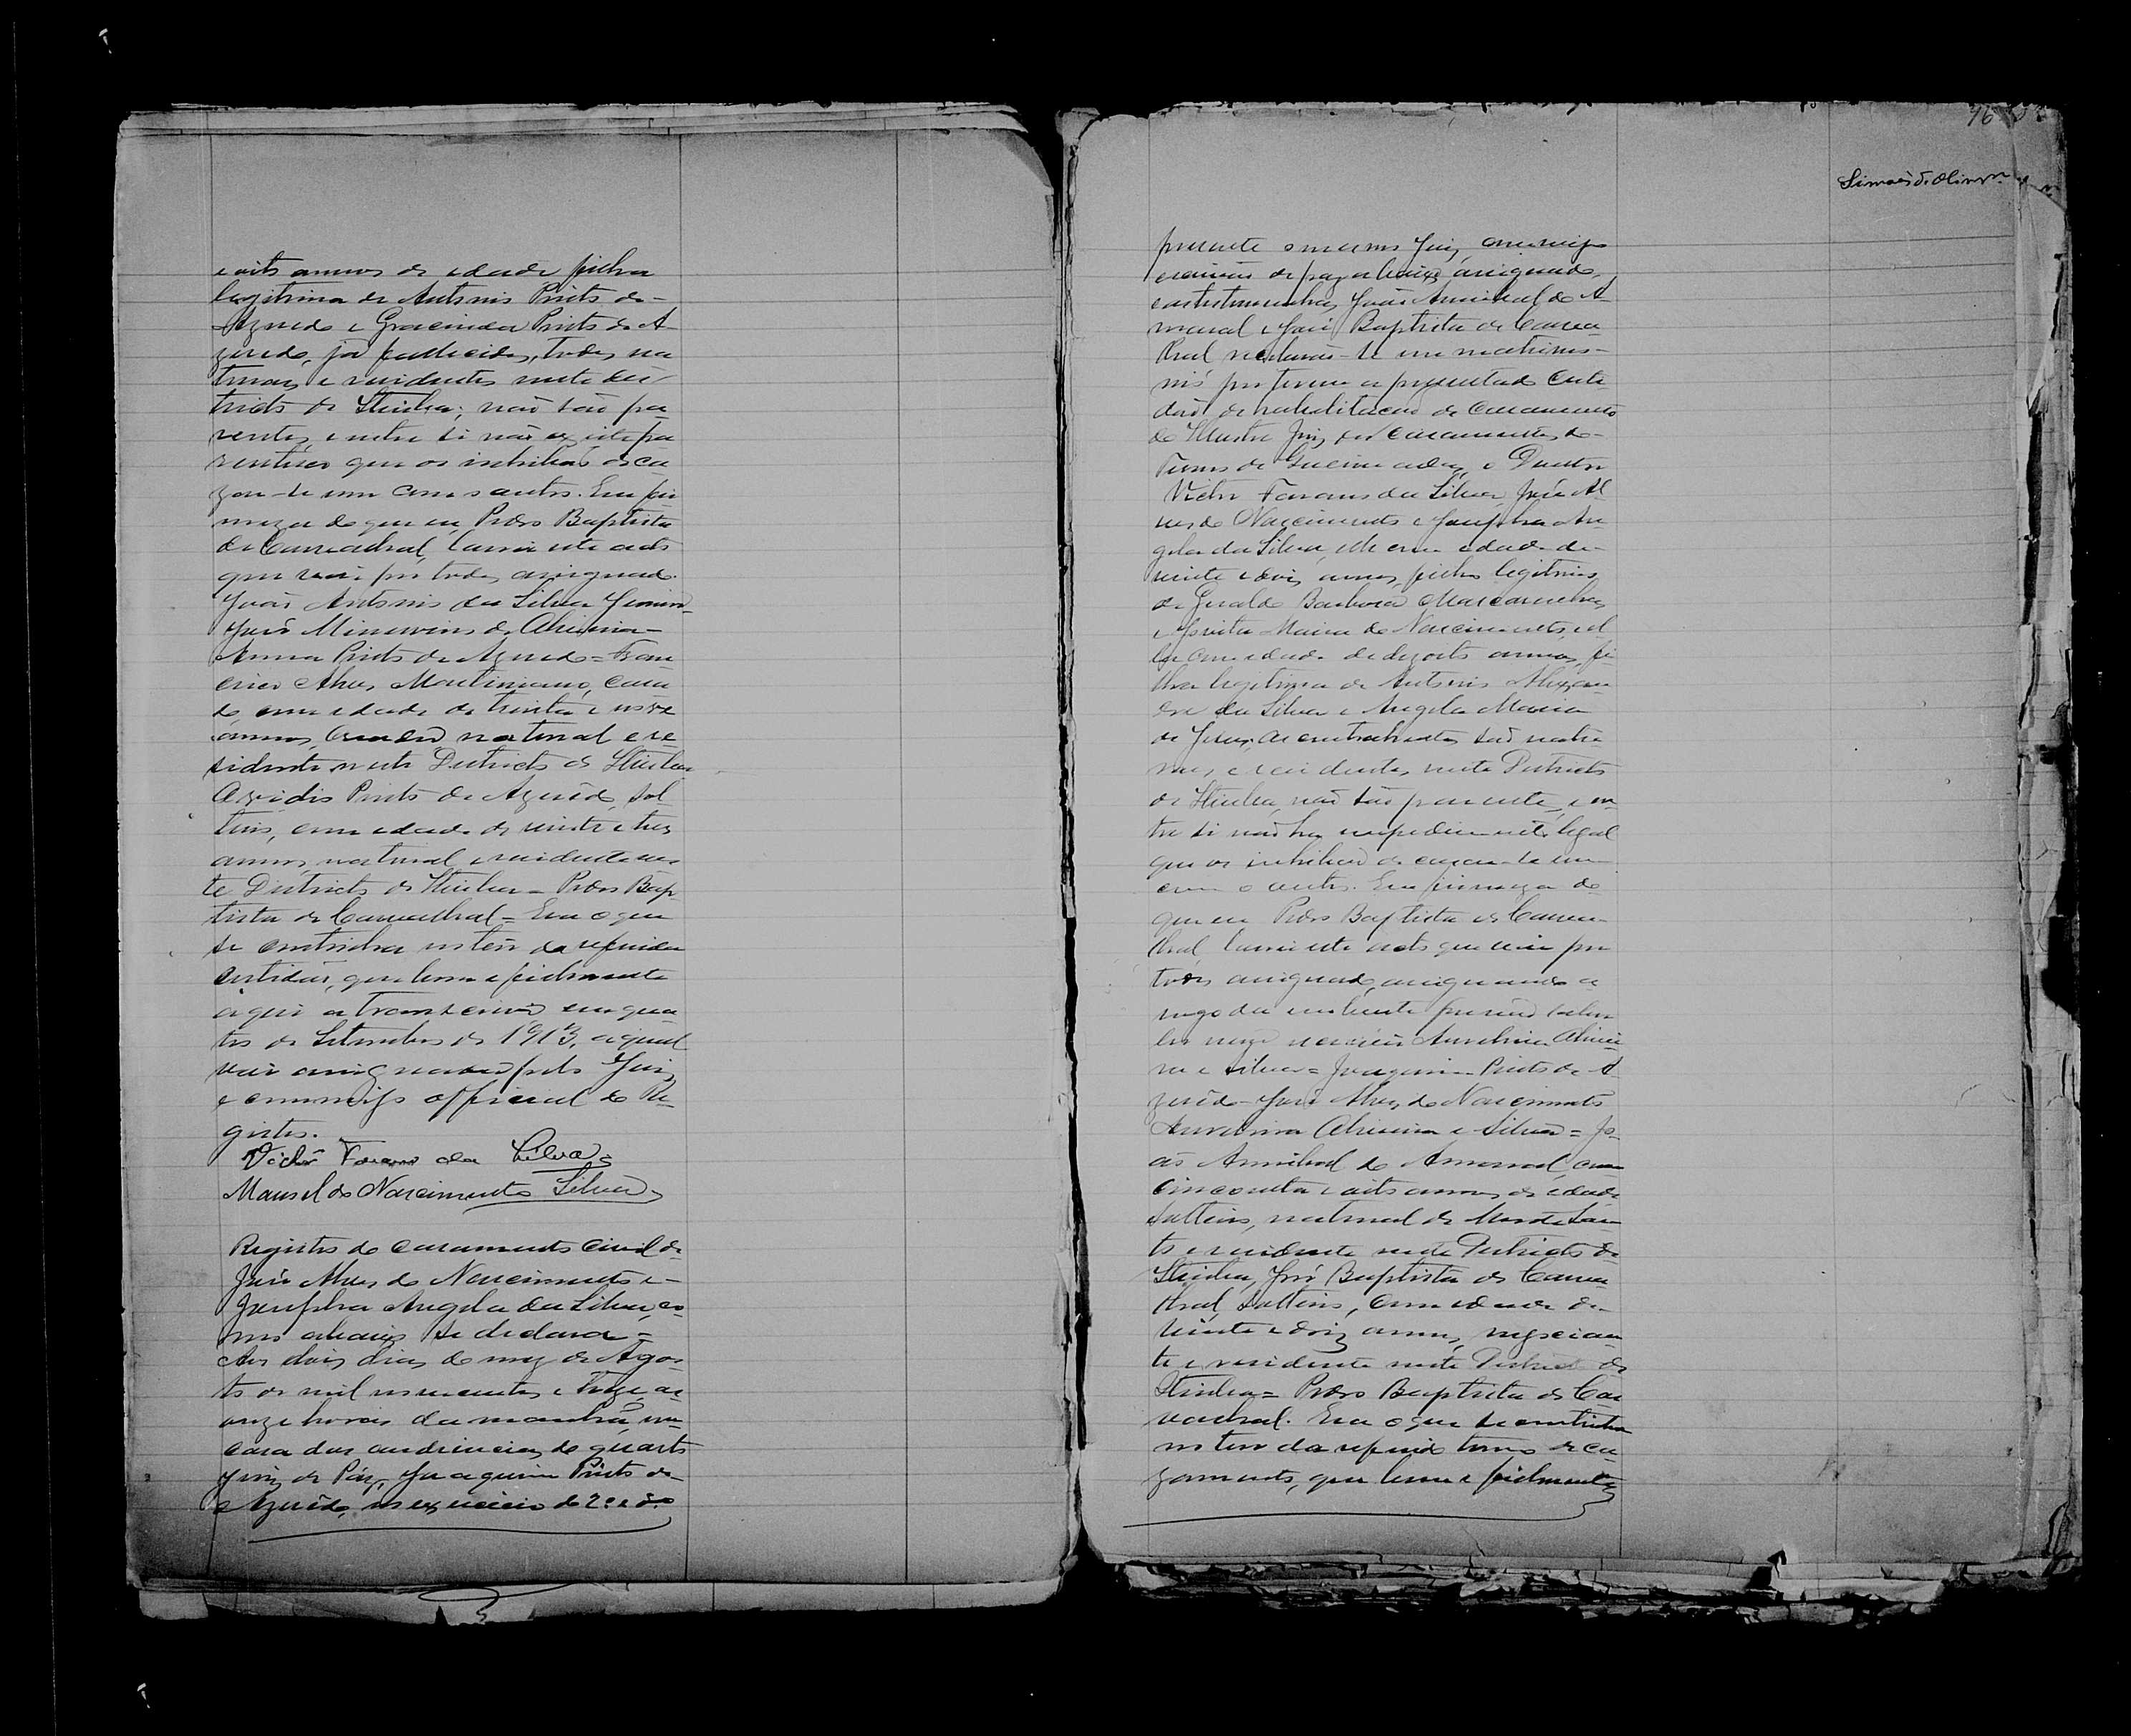 e oito annos de edade filha
legitima de Antonio Pinto de
Azeredo e Gracinda Pinto de A-
zeredo, já fallecidos, todos na
turaes e residentes neste dis
tricto de Itiuba; não são pa-
rentes, e entre si não existe pa
rentesco que os inhibão de ca
zar-se um com o outro. Em fir
meza do que eu Pedro Baptista
de Carvalhal, lavrei este acto
que vai por todos assignado.
João Antonio da Silva
José Minervino de Oliveira
Anna Pinto de Azeredo =
Alves Martiniano, casa
do, com edade de trinta e nove
annos, natural e re-
sidente neste Districto de Itiuba
Pinto de Azerêdo, sol
teiro, com edade de vinte e tres
annos, natural e residente nes
te Districto de Itiuba = Pedro Bap
tista de Carvalhal = Era o que
se continha no teôr da referida
certidão, que bem e fielmente
aqui a transcrevi, em qua
tro de Setembro de 1913, a qual
vai assignada pelo Juiz
e commigo official do Re-
gistro.
Victor da Silva
Manoel do Nascimento Silva
Registro do casamento civil de
José Alves do Nascimento e
Josepha Angela da Silva, co
mo abaixo se declara =
Aos dois dias do mez de Agos-
to de mil novecentos e treze, as
onze horas da manhã, na
casa das audiencias, do quarto
Juiz de Paz, Joaquim Pinto de
Azerêdo, no exercicio do 2º
76
Simões d'Oliveira
perante o mesmo Juiz, commigo
escrivão de paz abaixo assignado,
e as testemunhas, João Annibal do A
maral e José Baptista de Carva
lhal receberão-se em matrimo-
nio por terem apresentado certi
dão de habilitação de casamento
do Illustre Juiz dos Casamentos, do
Termo de Queimadas, o Doutor
Victor da Silva, José Al
ves do Nascimento e Josepha An
gela da Silva, elle com edade de
vinte e dois annos, filho legitimo
de Geraldo Barbosa Mascarenhas
e Maria do Nascimento, el
la com edade de dezoito annos, fi
lha legitima de Antonio Alexan
dre da Silva e Angela Maria
de Jesus, os contrahentes são natu
raes, e residentes neste Districto
de Itiuba, não são parentes, e en
tre si não ha impedimento legal
que os inhibão de casar-se um
com o outro. Em firmeza do
que eu Pedro Baptista de Carva
lhal, lavrei este acto que vai por
todos assignado, assignando a
rogo da nubente por não saber
ler nem escrever Aurelina Olivei
ra e Silva = Joaquim Pinto de A
zerêdo = José Alves do Nascimento
Aurelina Oliveira e Silva = Jo
ão Annibal do Amaral, com
cincoenta e oito annos de edade
solteiro, natural de Monte San
to e residente neste Districto de
Itiuba, José Baptista de Carva
lhal, solteiro, com edade de
vinte e dois annos, negocian
te e residente neste Districto de
Itiuba = Pedro Baptista de Car
valhal. Era o que se continha
no teor do referido termo de ca
zamento, que bem e fielmente